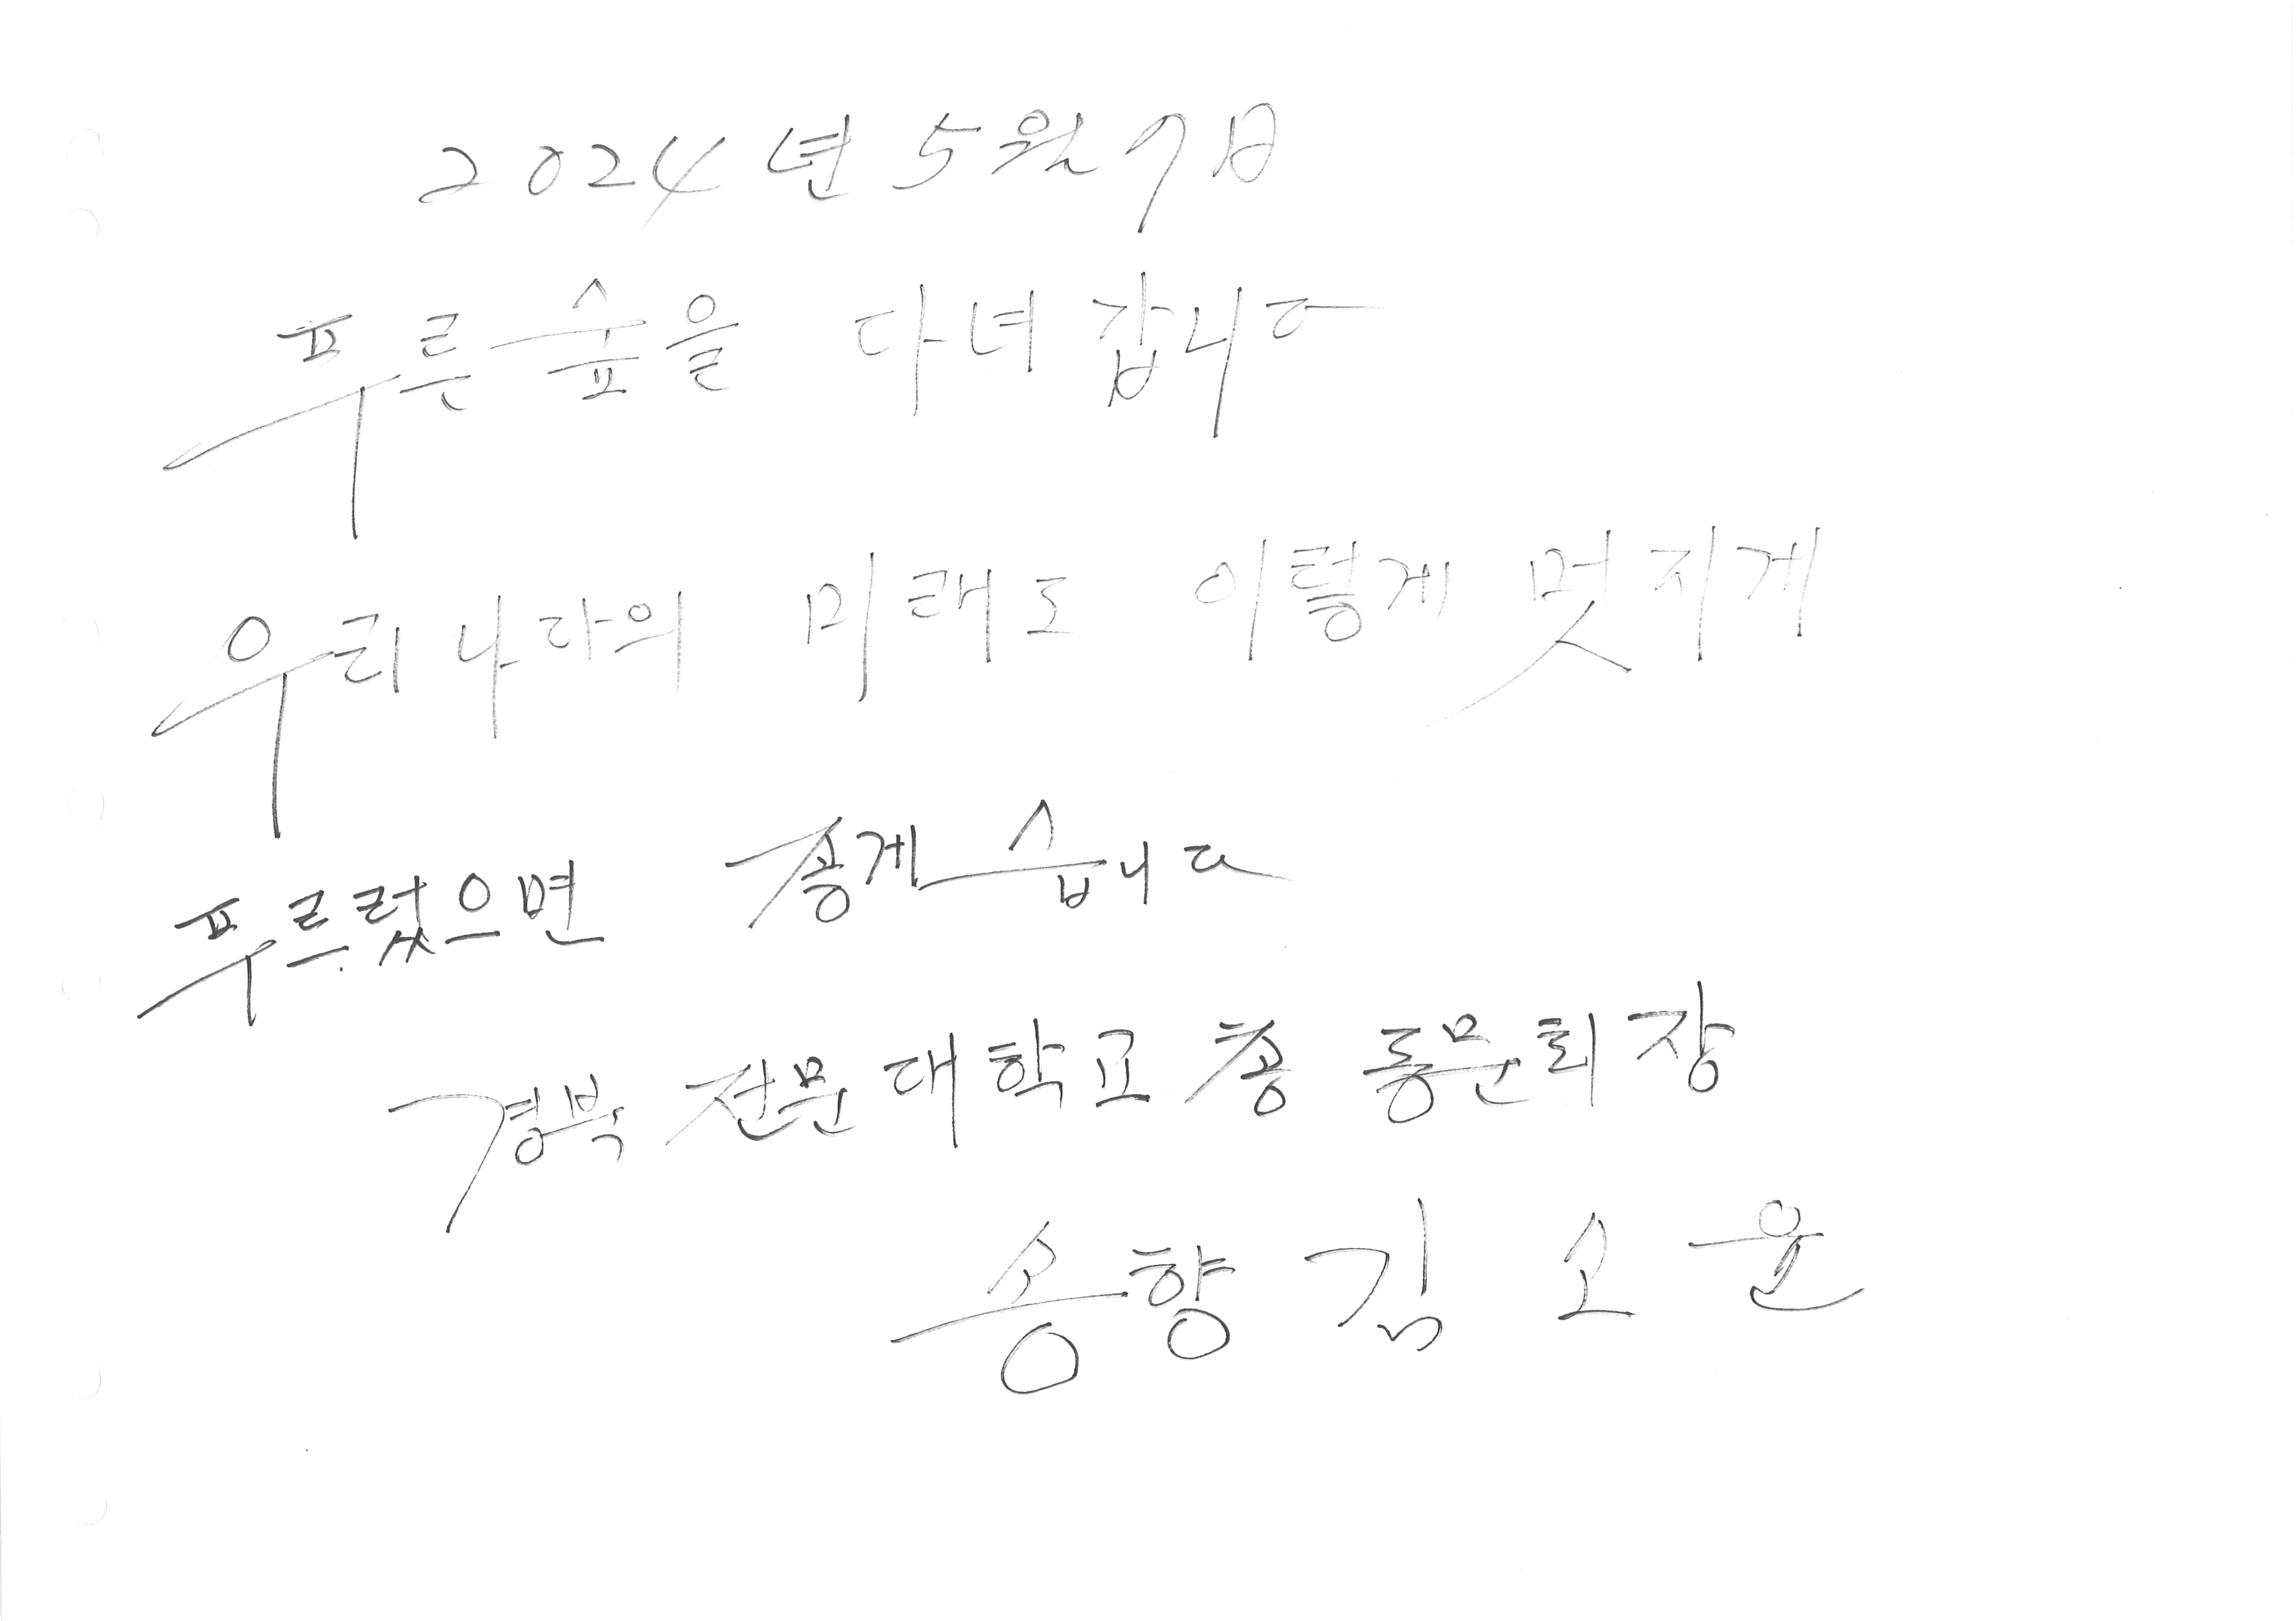 2024년 5월 7日
푸른숲을 다녀 갑니다
우리나라의 미래도 이렇게 멋지게
푸르렀으면 좋게습니다
경북 전문대학교 총 동문회장
송향 김 소 윤